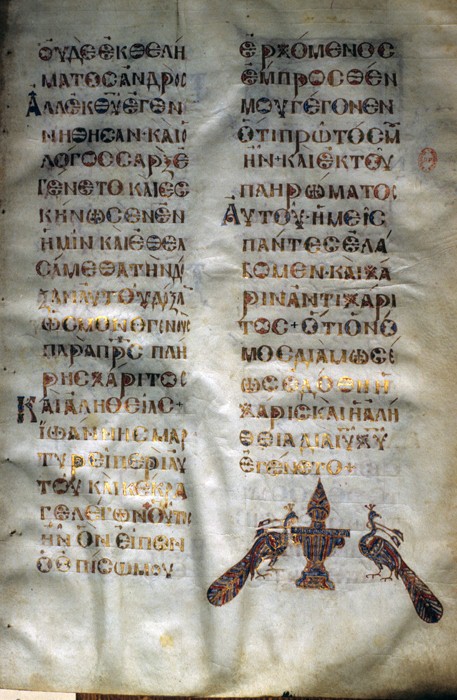 ΟΥΔΕ ΕΚ ΘΕΛΗ
ΜΑΤΟϹ ΑΝΔΡΟϹ
ΑΛΛ ΕΚ ΘΥ ΕΓΕΝ
ΝΗΘΗϹΑΝ· ΚΑΙ Ο
ΛΟΓΟϹ ϹΑΡΞ Ε
ΓΕΝΕΤΟ ΚΑΙ ΕϹ
ΚΗΝΩϹΕΝ ΕΝ
ΗΜΙΝ ΚΑΙ ΕΘΕΑ
ϹΑΜΕΘΑ ΤΗΝ ΔΟ
ΞΑΝ ΑΥΤΟΥ ΔΟΞΑ
ΩϹ ΜΟΝΟΓΕΝΟΥϹ
ΠΑΡΑ ΠΡϹ ΠΛΗ
ΡΗϹ ΧΑΡΙΤΟϹ
ΚΑΙ ΑΛΗΘΕΙΑϹ+
ΙΩΑΝΝΗϹ ΜΑΡ
ΤΥΡΕΙ ΠΕΡΙ ΑΥ
ΤΟΥ ΚΑΙ ΚΕΚΡΑ
ΓΕ ΛΕΓΩΝ ΟΥΤΟϹ
ΗΝ ΟΝ ΕΙΠΟΝ
Ο ΟΠΙϹΩ ΜΟΥ
ΕΡΧΟΜΕΝΟϹ
ΕΜΠΡΟϹΘΕΝ
ΜΟΥ ΓΕΓΟΝΕΝ
ΟΤΙ ΠΡΩΤΟϹ Μ
ΗΝ+ ΚΑΙ ΕΚ ΤΟΥ
ΠΛΗΡΩΜΑΤΟϹ
ΑΥΤΟΥ· ΗΜΕΙϹ
ΠΑΝΤΕϹ ΕΛΑ
ΒΟΜΕΝ· ΚΑΙ ΧΑ
ΡΙΝ ΑΝΤΙ ΧΑΡΙ
ΤΟϹ+ ΟΤΙ Ο ΝΟ
ΜΟϹ ΔΙΑ ΜΩϹΕ
ΩϹ ΕΔΟΘΗ Η
ΧΑΡΙϹ ΚΑΙ Η ΑΛΗ
ΘΕΙΑ ΔΙΑ ΙΥ ΧΥ
ΕΓΕΝΕΤΟ+